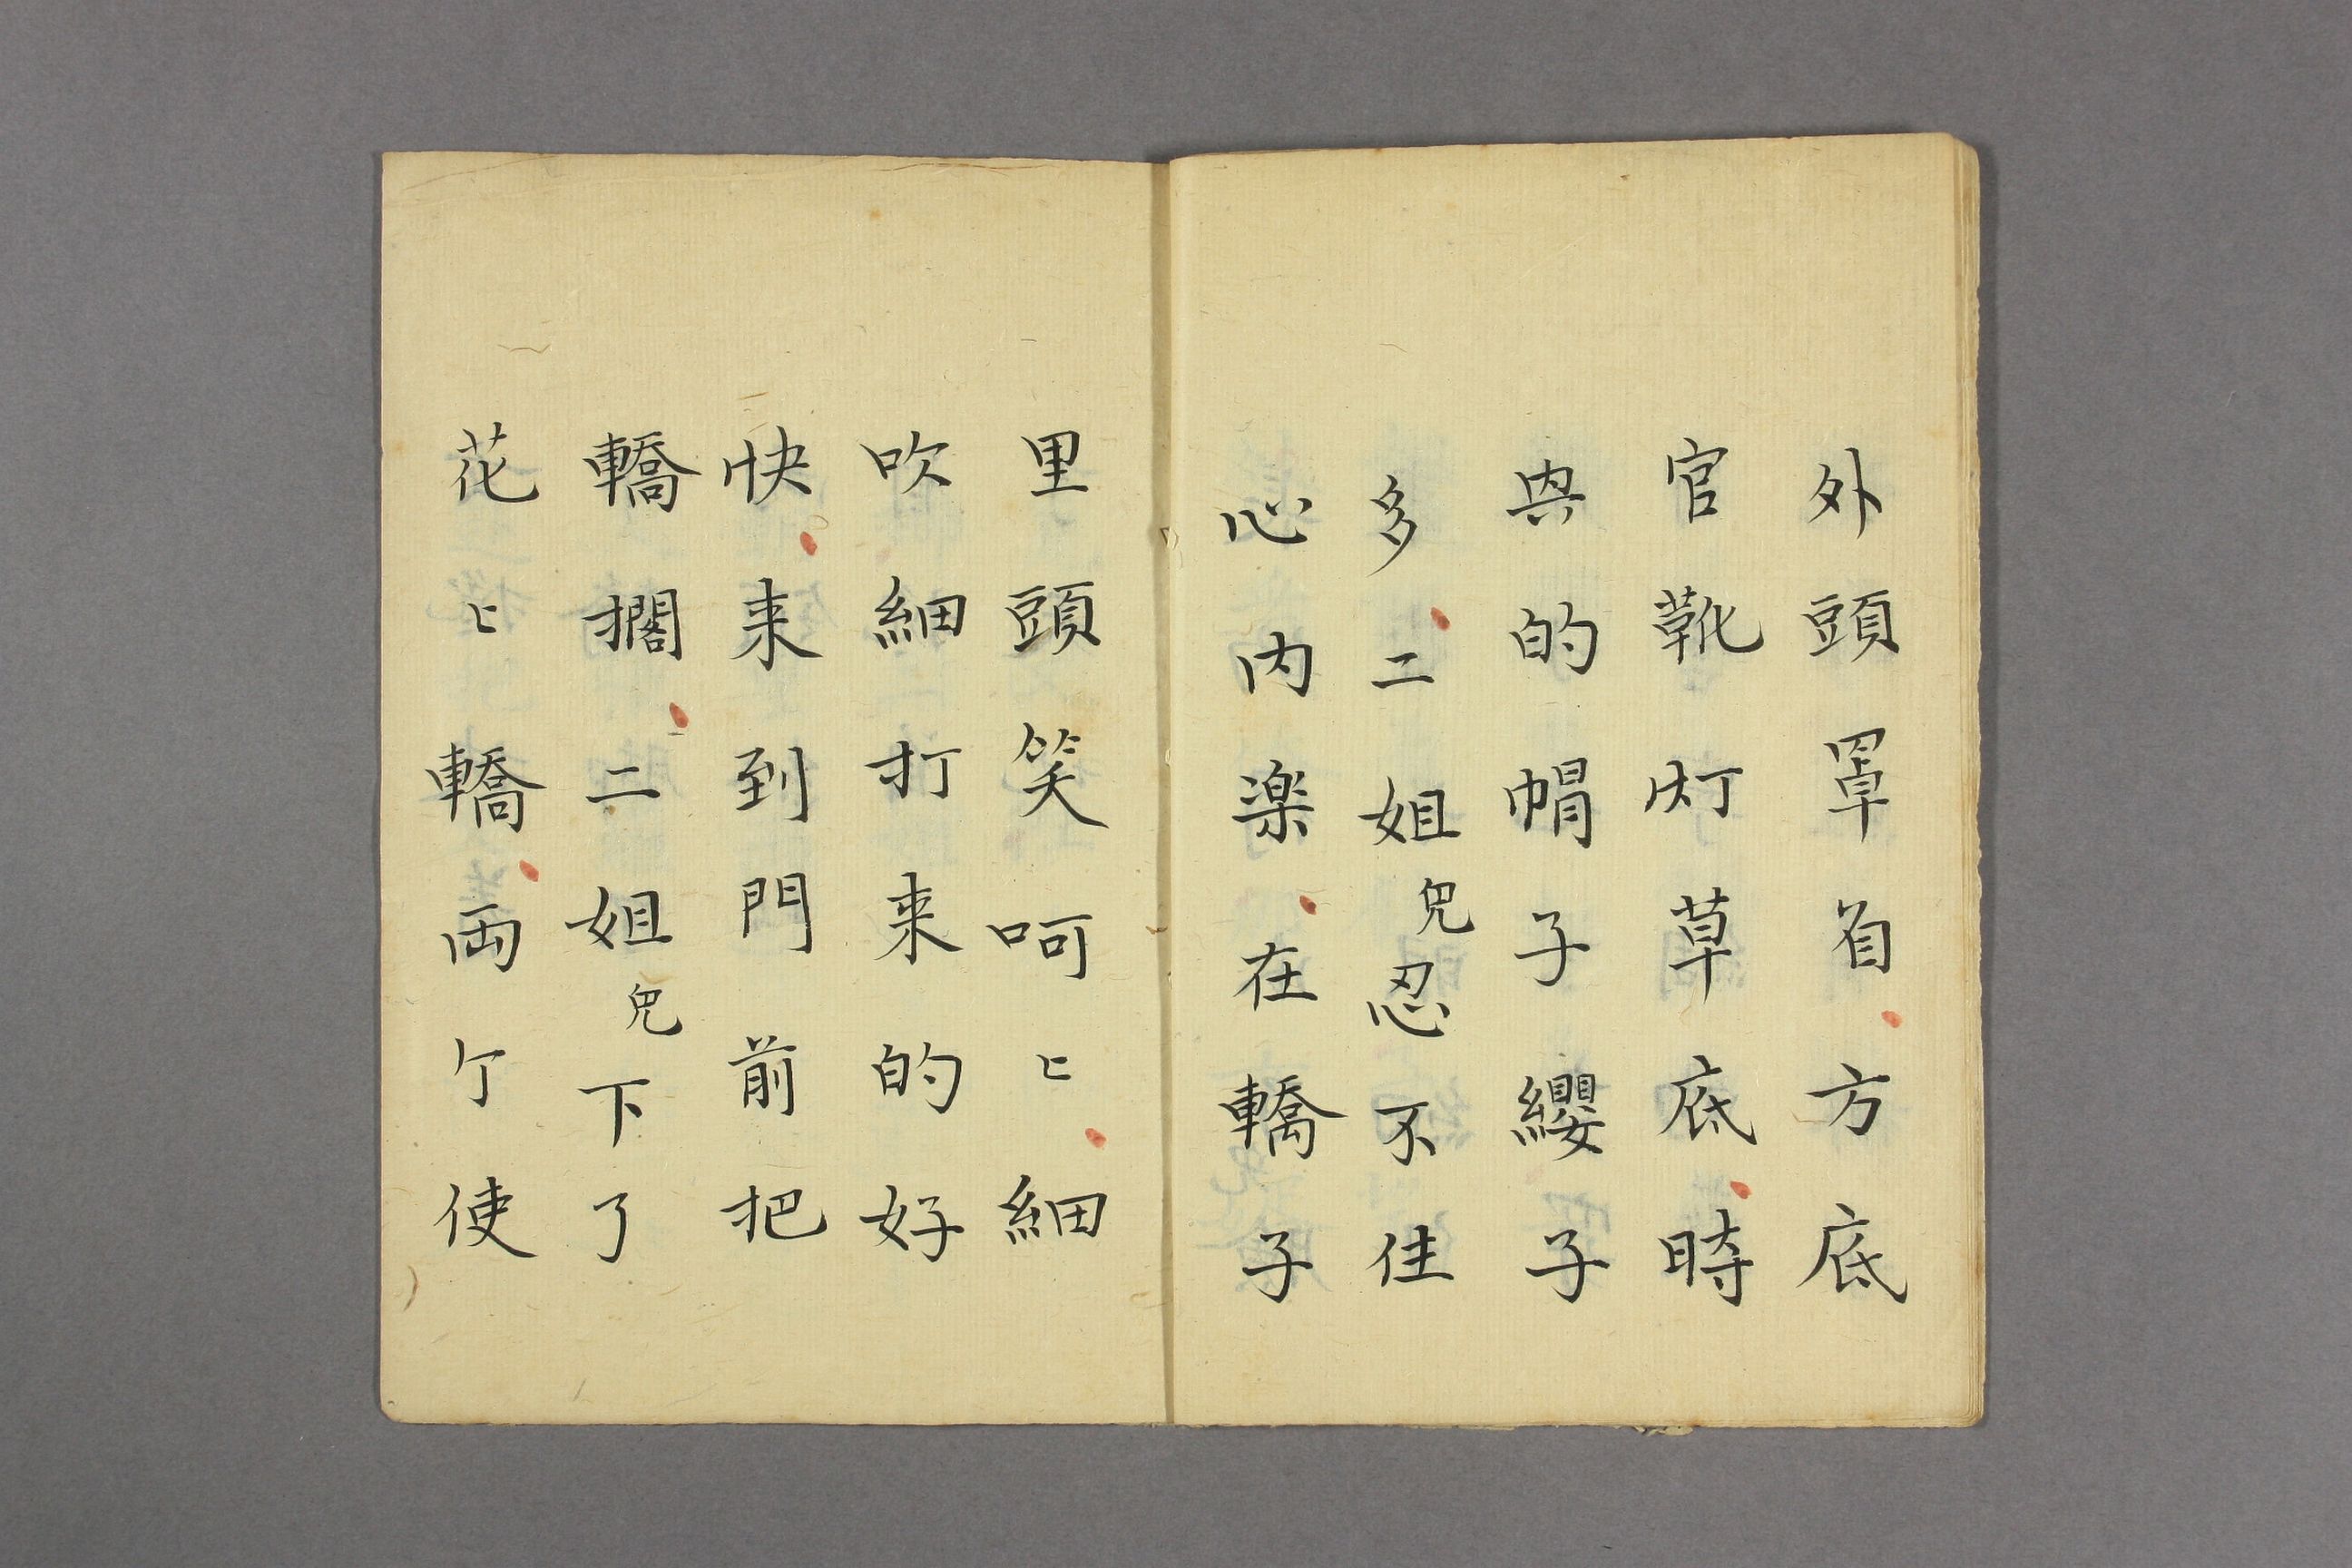 外頭罩着方底
官靴灯草底時
兴的帽子纓子
多二姐兒忍不住
心内楽在轎子
里頭笑呵ヒ細
吹細打来的好
快来到門前把
轎擱二姐兒下了
花ヒ轎両个使